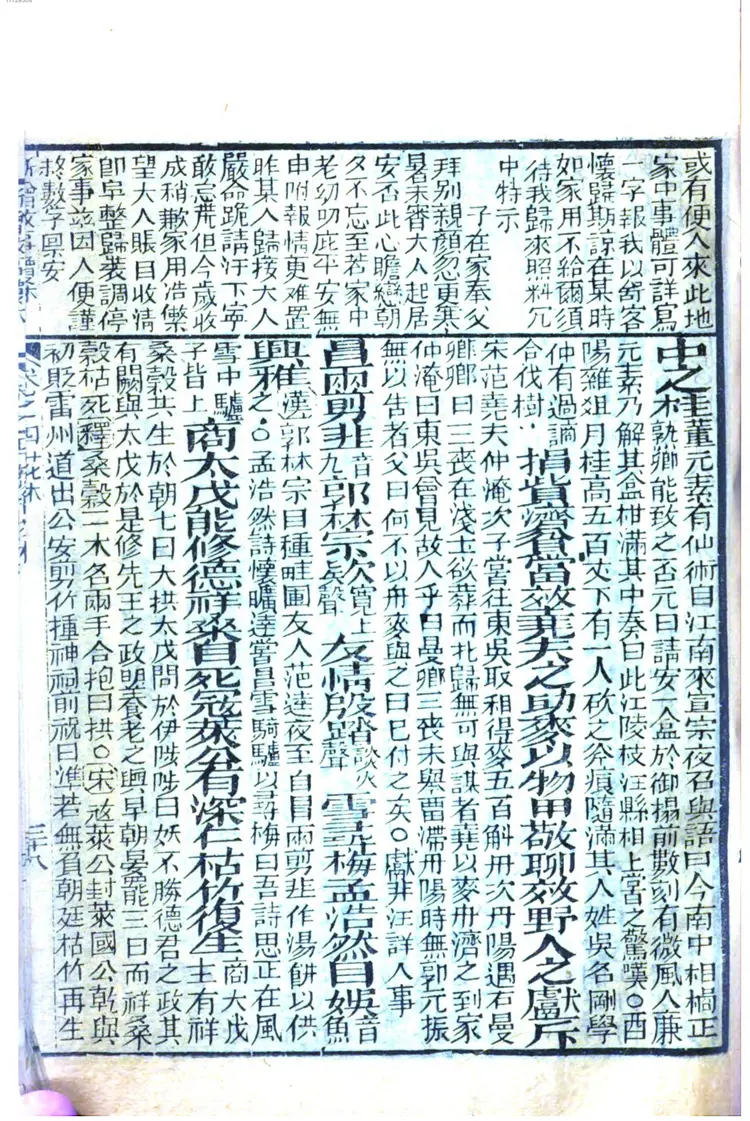 或有便人來此地
家中事體可詳寫
一字報我以舒客
懷歸期諒在某時
如家用不給爾須
待我歸來照料冗
中特示
子在家奉父
拜別親顏忽更寒
暑未審大人起居
安否此心瞻戀朝
夕不忘至若家中
老幼叨庇平安無
甲附報情更难置
昨某人歸接大人
嚴命跪請汗下寧
敢忘荒但今歲收
成稍歉家用浩繁
望大人賬目收清
卽早整歸裝調停
家事茲因人便謹
終數字禀安
中之柑 董元素有仙術自江南來宣宗夜召與語曰今南中柑橘正
熟卿能致之否元曰請安一盒於御榻前數刻有微風入廉
元素乃解其盒柑滿其中奏曰此江陵枝江縣柑上嘗之驚嘆○酉
陽雜俎月桂高五百丈下有一人砍之斧痕隨滿其人姓吳名剛學
仲有過謫
合伐樹 捐貲濟眷當效堯夫之助麥以物甲敬聊效野人之獻芹
宋范堯夫仲淹次子嘗往東吳取租得麥五百斛舟次丹陽遇石曼
卿卿曰三喪在淺土欲葬而北歸無可與謀者堯以麥舟濟之到家
仲淹曰東吳曾見故人乎曰曼卿三喪未舉畱滯丹陽時無郭元振
無以告者父曰何不以舟麥與之曰已付之矣○獻芹汪詳人事
冒雨剪韭音九郭林宗欸寬上聲友情殷踏雪尋梅孟浩然自娛音魚
興雅 漢郭林宗自種畦圃友人范逵夜至自冒雨剪韭作湯餅以供
之○孟浩然詩懷曠達嘗冒雪騎驢以尋梅曰吾詩思正在風
雪中驢
子皆上 商太戊能修德祥桑自死寇萊公有深仁枯竹復生 商大戊
王有祥
桑榖共生於朝七日大拱太戊問於伊陟陟曰妖不勝德君之政其
有闕與太戊於是修先王之政明養老之典早朝晏罷三日而祥桑
榖枯死釋桑榖二木名兩手合抱曰拱○宋寇萊公封萊國公乾興
初貶雷州道出公安剪竹揷神祠前祝曰準若無負朝廷枯竹再生
卷之四 花木
二十八